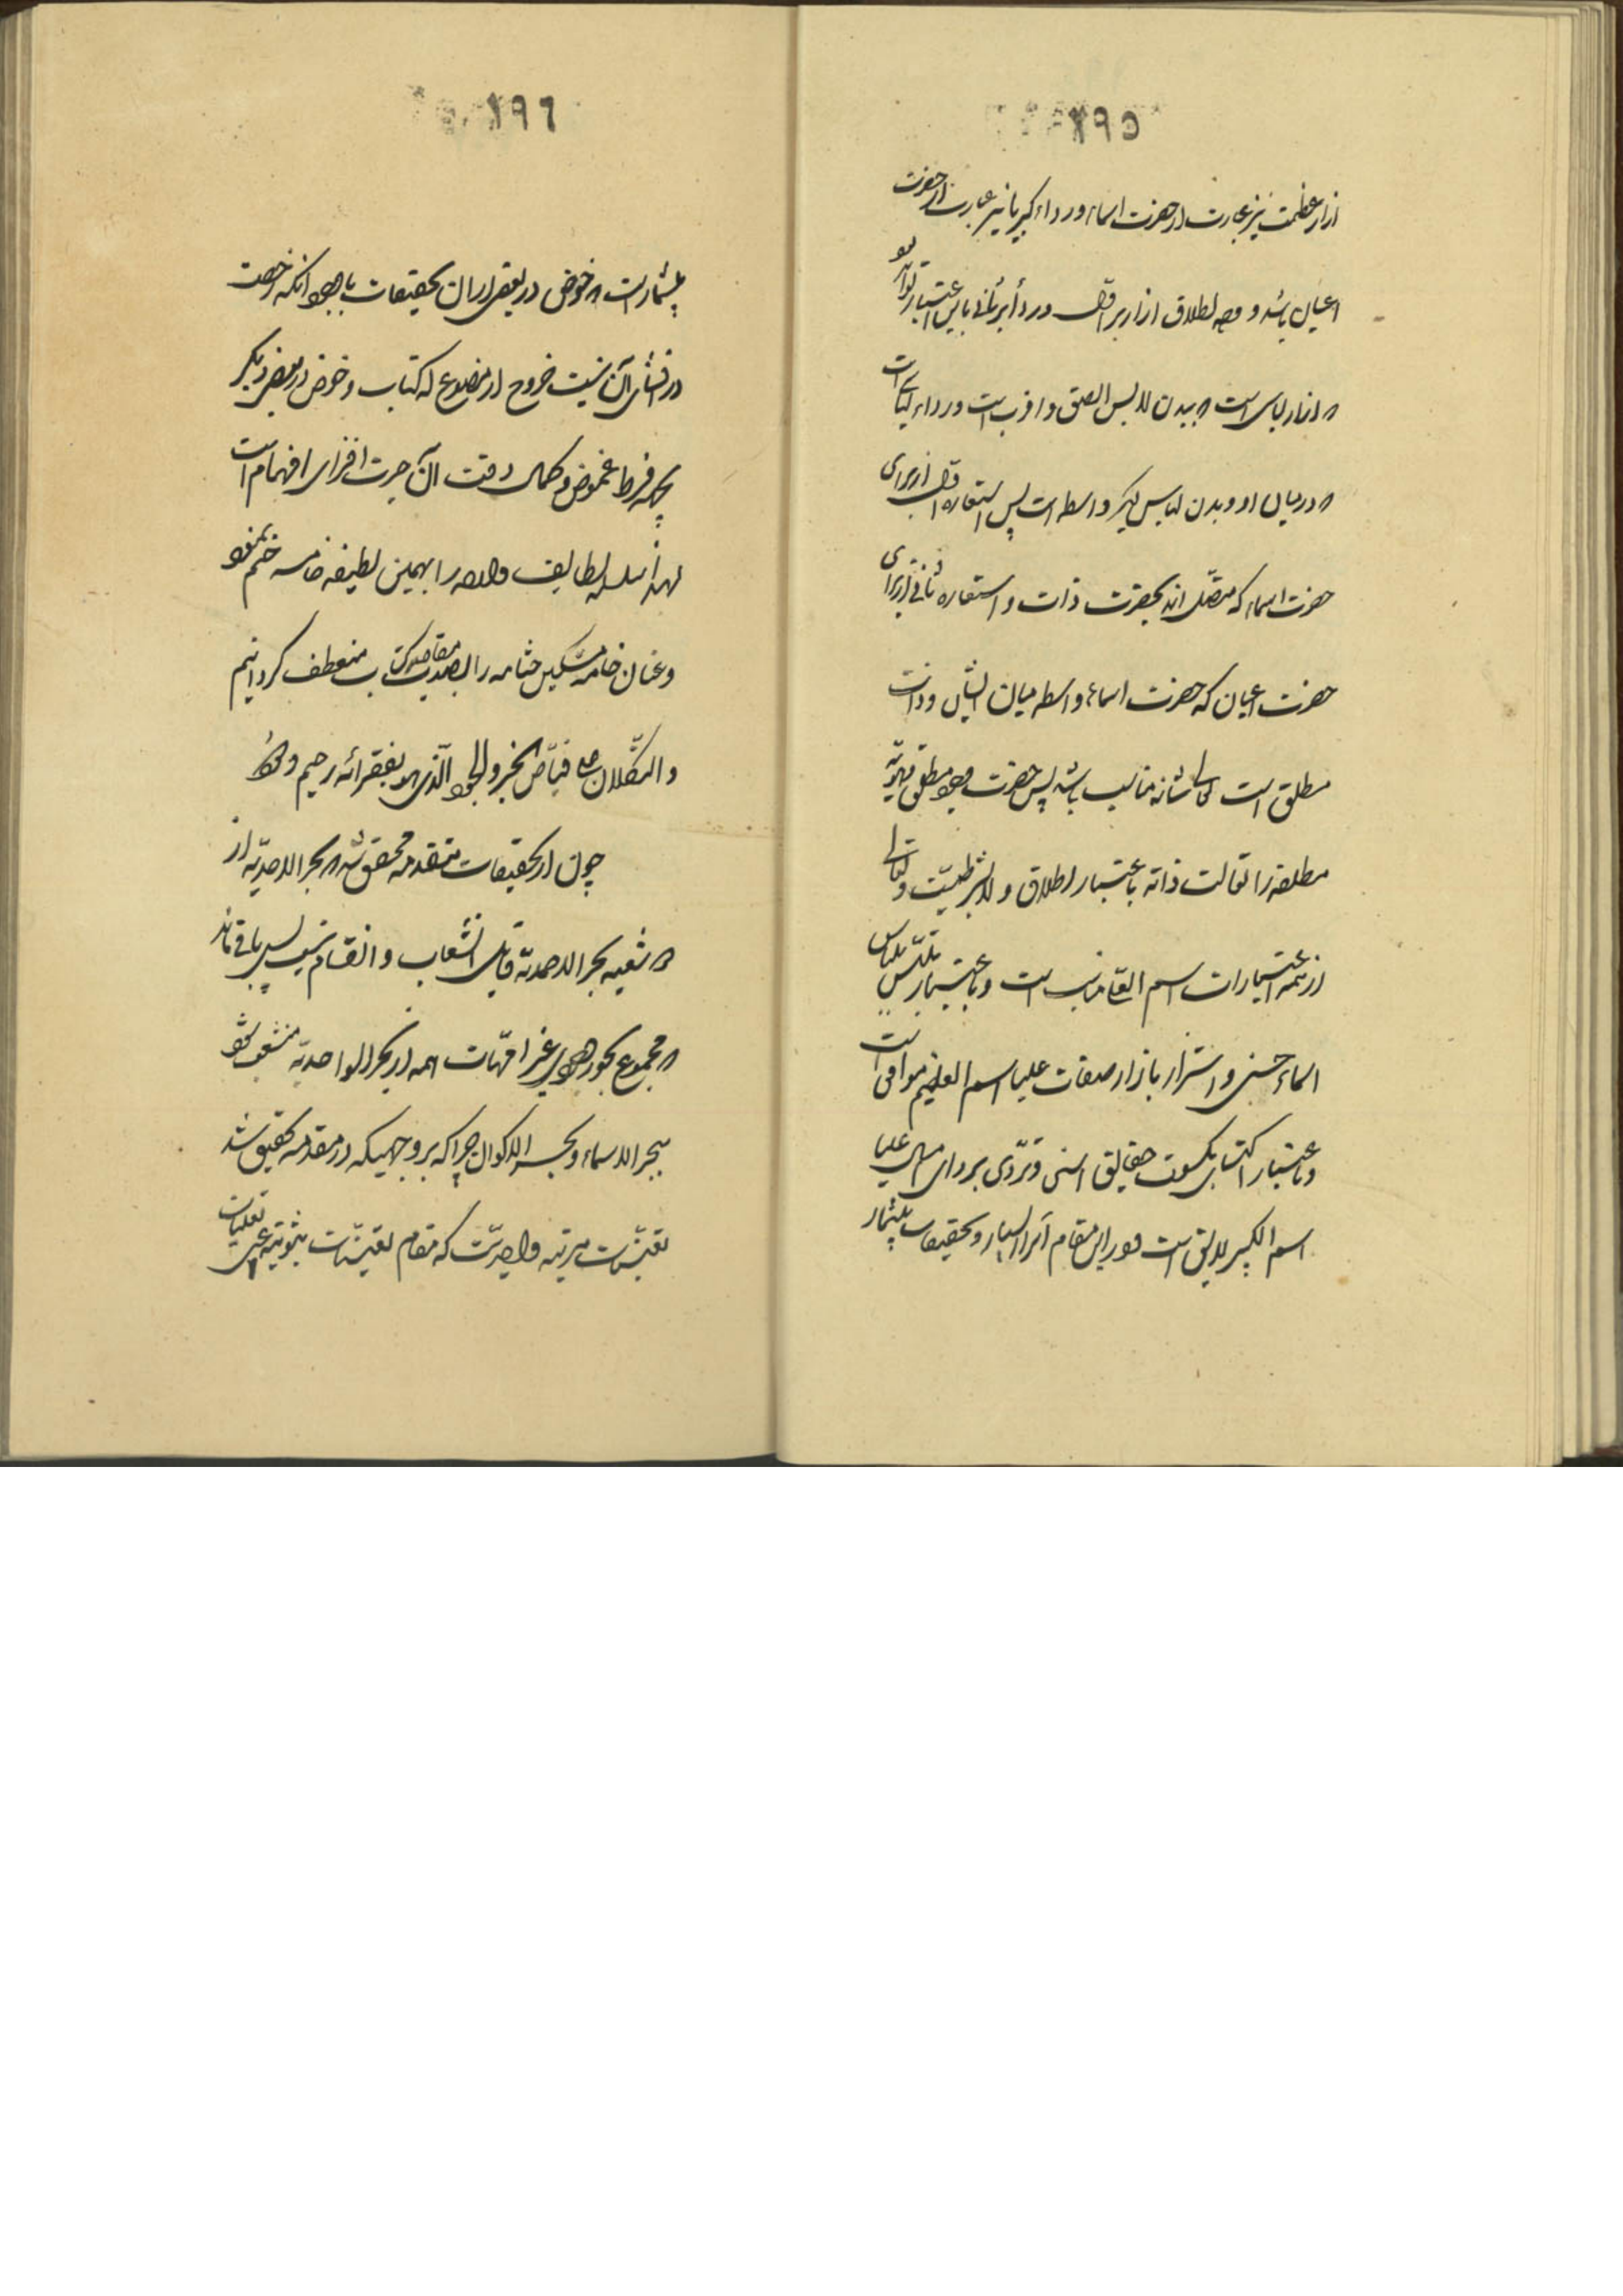 ١٩٥
ازار عظمت نیز عبارت از حضرت اسماء و رداء کبریا نیز عبارت از حضرت
اعیان باشد و وجه اطلاق ازار بر اوّل و رداء بر ثانی باین اعتبار تواند بود
که ازار لباسی است که ببدن لابس الصق و اقرب است و رداء لباسی است
که در میان او و بدن لباس دیگر واسطه است پس استعاره اوّل از برای
حضرت اسماء که متصّل اند بحضرت ذات و استعاره ثانی از برای
حضرت اعیان که حضرت اسماء واسطه میان ایشان و ذات
مطلق است کمال شانه مناسب باشد پس حضرت وجود مطلق و هویّه
مطلقه را تعالت ذاته باعتبار اطلاق و لابشرطیّت و
از همه اعتبارات اسم العلّام مناسب است و باعتبار تلبّس بلباس
اسماء حسنی و استزار بازار صفات علیا اسم العظیم موافق است
و باعتبار اکتسای بکسوت حقایق اسنی و تردّی بردای علیا
اسم الکبیر لایق است و در این مقام اسرار بسیار و تحقیقات بیشمار
١٩٦
بیشمار است که خوض در بعضی از آن تحقیقات با وجود آنکه رخصت
در افشای آن نیست خروج از موضوع له کتاب و خوض در بعضی دیگر
بجهة فرط غموض و کمال دقت آن حیرت افزای افهام است
لهذا سلسله لطایف را بهمین لطیفه خامسه ختم نمود
و عنان خامه مشکین ختامه را بصوب مقاصد کتاب منعطف گردانیم
و التکلان علی فیّاض الخیر والجود الّذی هو بفقرائه رحیم ودود
چون از تحقیقات متقدمه محقق شد که بحر الاحدیّه از
که شعبه بحر الاحدیّه قابل انشعاب و انقسام نیست پس باقی ماند
که مجموع بحور وجودی غیر امّهات همه از بحر الواحدیّه منشعب شود
ببحر الاسماء و بحر الاکوان چرا که بر وجهیکه در مقدمه تحقیق شد
تعیّنات مرتبه واحدیّت که مقام تعیّنات ثبوتیه علمی